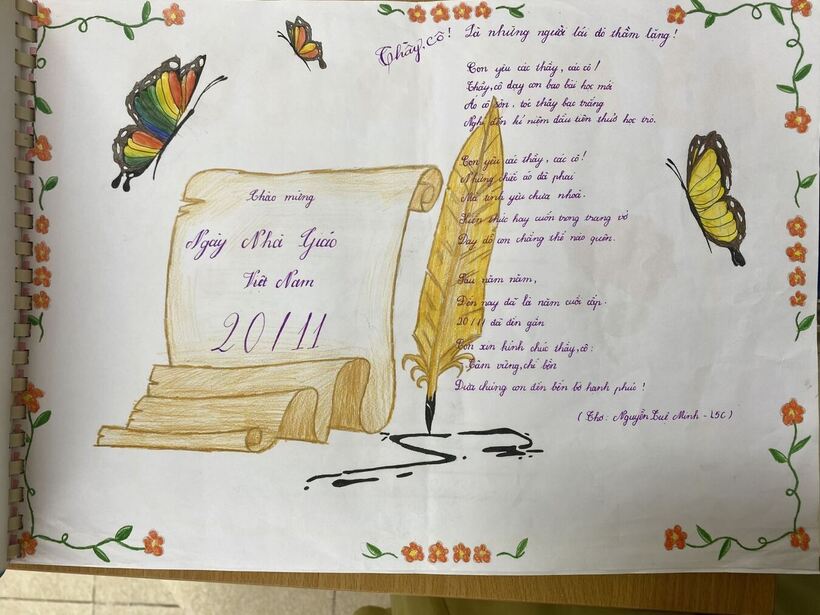 Chào mừng
Ngày Nhà Giáo
Việt Nam
20/11
Thầy, cô! Là những người lái đò thầm lặng!
Con yêu các thầy, các cô!
Thầy, cô dạy con bao bài học mới
Áo cô sờn, tóc thầy bạc trắng
Nghĩ đến kỉ niệm đầu tiên thuở học trò.
Con yêu các thầy, các cô!
Những chiếc áo đã phai
Mà tình yêu chưa nhoà.
Kiến thức hay cuốn trong trang vở
Dạy dỗ con chẳng thể nào quên.
Sáu năm năm,
Đến nay đã là năm cuối cấp.
20/11 đã đến gần
Con xin kính chúc thầy, cô:
Cầm vững, chí bền
Đưa chúng con đến bến bờ hạnh phúc!
(Thơ: Nguyễn Tuệ Minh - L5C)